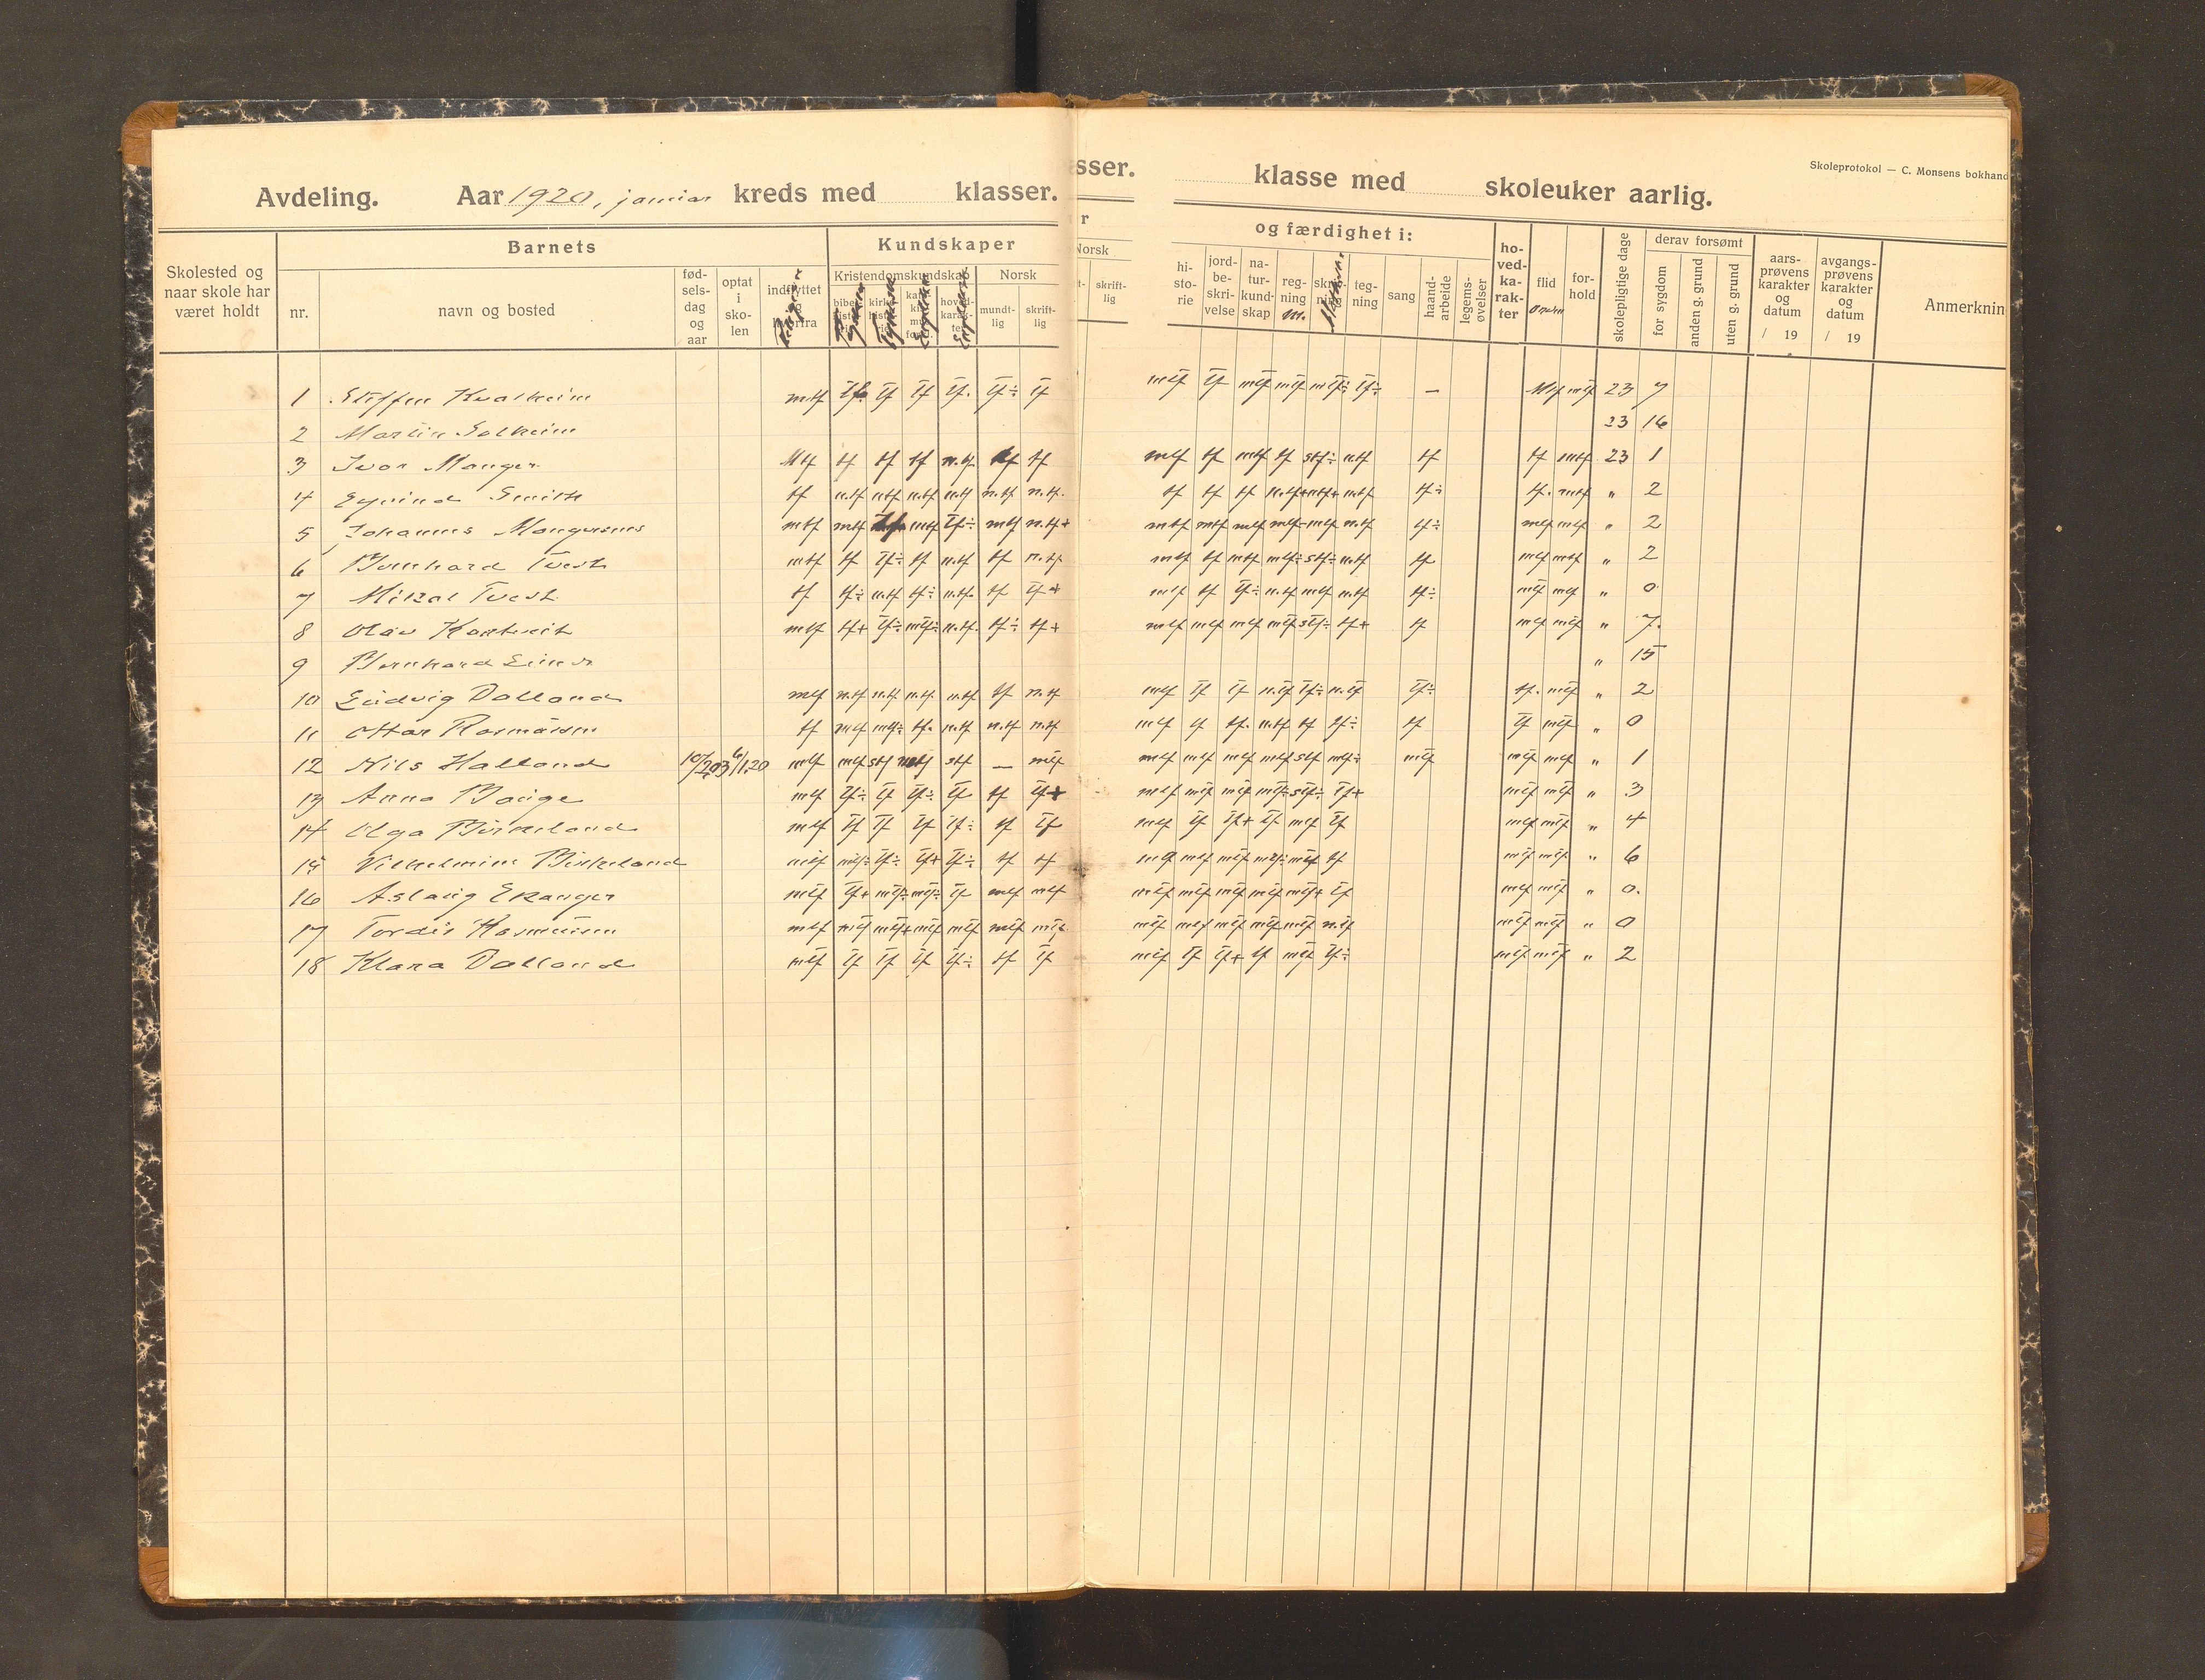 Avdeling. Aar 1920, januar kreds med klasser.
sser. klasse med skoleuker aarlig.
Skoleprotokol — C. Monsens bokhand
Skolested og naar skole har været holdt
Barnets
nr.
navn og bosted
fød- sels- dag og aar
optat i sko- len
indflyttet
Kundskaper
Kristendomskundskap
Norsk
mundt- lig
skrift- lig
r
Norsk
skrift- lig
og færdighet i:
hi- sto- rie
jord- be- skri- velse
na- tur- kund- skap
reg- ning
m.
teg- ning
sang
haand- arbeide
legems- øvelser
ho- ved- ka- rak- ter
flid
Orden
for- hold
skolepligtige dage
derav forsømt
for sygdom
anden g. grund
uten g. grund
aars- prøvens karakter og datum
/ 19
avgangs- prøvens karakter og datum
/ 19
Anmerknin
1 Steffen Kvalheim mtf tf tf tf tf. tf÷ tf mtf tf mtf mtf mtf÷ tf÷ — Mtf mtf 23 7
2 Martin Solheim 23 16
3 Ivar Manger Mtf tf tf tf n.tf tf tf mtf tf mtf tf stf÷ ntf tf tf mtf 23 1
4 Eyvind Smith tf ntf ntf ntf ntf n.tf n.tf. tf tf tf n.tf+ mtf+ mtf tf÷ tf. mtf „ 2
5 Johannes Mangersnes mtf mtf mtf tf÷ mtf n.tf+ mtf mtf mtf mtf- mtf n.tf tf÷ mtf mtf „ 2
6 Bernhard Tveit mtf tf tf÷ tf n.tf tf n.tf. mtf tf mtf mtf÷ stf÷ ntf tf mtf mtf „ 2
7 Mikal Tveit tf tf÷ n.tf tf÷ n.tf. tf tf+ mtf tf tf÷ n.tf mtf n.tf tf÷ mtf mtf „ 0
8 Olav Kartveit mtf tf+ tf÷ mtf÷ n.tf. tf÷ tf+ mtf mtf mtf mtf stf÷ tf+ tf mtf mtf „ 7.
9 Bernhard „ 15
10 Ludvig Dalland mtf n.tf n.tf n.tf. n.tf tf n.tf mtf tf tf n.tf tf÷ n.tf tf÷ tf. mtf „ 2
11 Ottar Rasmussen tf mtf mtf÷ tf. n.tf n.tf n.tf mtf tf tf. n.tf tf tf÷ tf tf mtf „ 0
12 Nils Halland 6/1.20 mtf mtf stf mtf stf — mtf mtf mtf mtf mtf stf mtf÷ mtf mtf mtf „ 1
13 Anna Bauge mtf tf÷ tf tf÷ tf tf tf+ mtf mtf mtf mtf÷ stf÷ tf+ mtf mtf „ 3
14 Olga Birkeland mtf tf tf tf tf÷ tf tf mtf tf tf+ tf mtf tf mtf mtf „ 4
15 Vilhelmine Birkeland mtf mtf÷ tf÷ tf+ tf÷ tf tf mtf mtf mtf÷ mtf tf mtf mtf „ 6
16 Aslaug Ekanger mtf tf+ mtf÷ mtf÷ tf mtf mtf mtf mtf mtf mtf mtf+ tf mtf mtf „ 0.
17 Tordis Rasmussen mtf mtf mtf+ mtf mtf mtf mtf mtf mtf mtf mtf mtf n.tf mtf mtf „ 0
18 Klara Dalland mtf tf tf tf tf÷ tf tf mtf tf tf+ tf mtf tf÷ mtf mtf „ 2